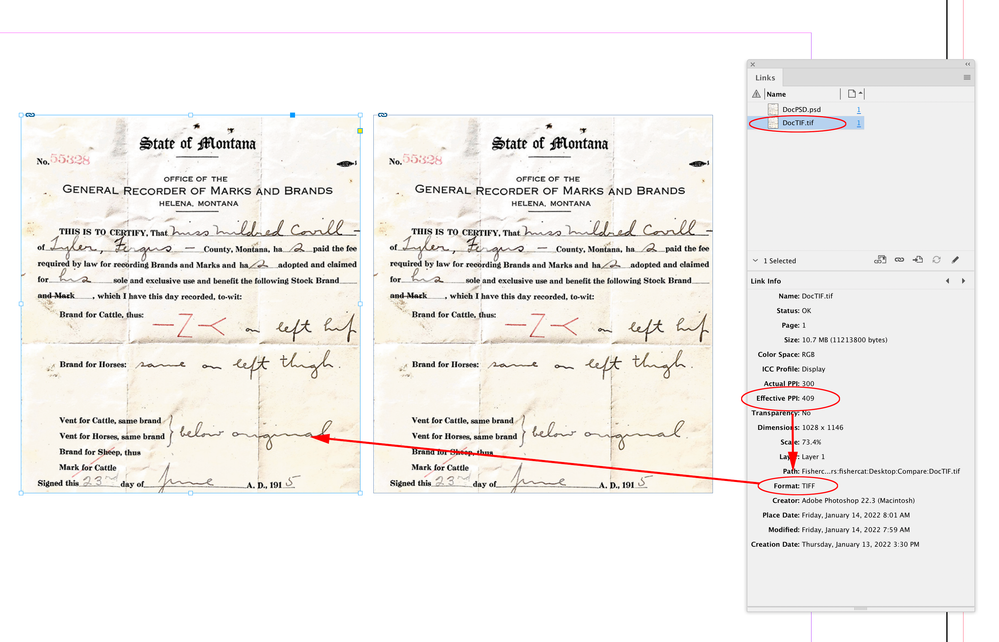 State of Montana
No. 55328
OFFICE OF THE
GENERAL RECORDER OF MARKS AND BRANDS
HELENA, MONTANA
THIS IS TO CERTIFY, That Miss Mildred Covill
of Tyler, Fergus — County, Montana, ha s paid the fee
required by law for recording Brands and Marks and ha s adopted and claimed
for his sole and exclusive use and benefit the following Stock Brand
and Mark , which I have this day recorded, to-wit:
Brand for Cattle, thus: on left hip
Brand for Horses: same on left thigh.
Vent for Cattle, same brand
Vent for Horses, same brand } below original
Brand for Sheep, thus
Mark for Cattle
Signed this 23rd day of June A. D., 1915
State of Montana
No. 55328
OFFICE OF THE
GENERAL RECORDER OF MARKS AND BRANDS
HELENA, MONTANA
THIS IS TO CERTIFY, That Miss Mildred Covill
of Tyler, Fergus — County, Montana, ha s paid the fee
required by law for recording Brands and Marks and ha s adopted and claimed
for his sole and exclusive use and benefit the following Stock Brand
and Mark , which I have this day recorded, to-wit:
Brand for Cattle, thus: on left hip
Brand for Horses: same on left thigh.
Vent for Cattle, same brand
Vent for Horses, same brand } below original
Brand for Sheep, thus
Mark for Cattle
Signed this 23rd day of June A. D., 1915
Links
Name
DocPSD.psd 1
DocTIF.tif 1
1 Selected
Link Info
Name: DocTIF.tif
Status: OK
Page: 1
Size: 10.7 MB (11213800 bytes)
Color Space: RGB
ICC Profile: Display
Actual PPI: 300
Effective PPI: 409
Transparency: No
Dimensions: 1028 x 1146
Scale: 73.4%
Layer: Layer 1
Path: Fisherc...rs:fishercat:Desktop:Compare:DocTIF.tif
Format: TIFF
Creator: Adobe Photoshop 22.3 (Macintosh)
Place Date: Friday, January 14, 2022 8:01 AM
Modified: Friday, January 14, 2022 7:59 AM
Creation Date: Thursday, January 13, 2022 3:30 PM